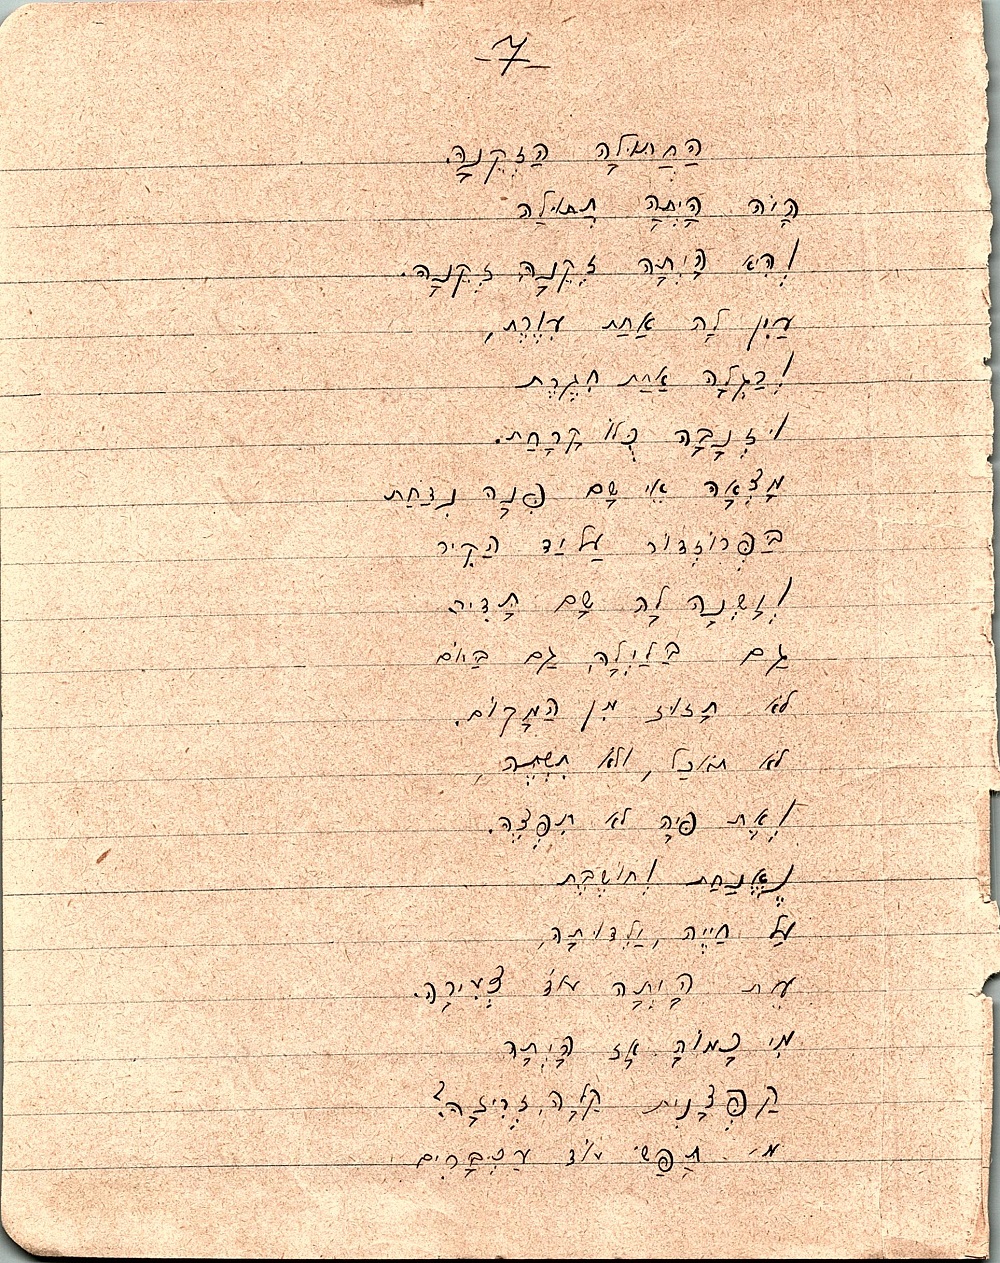 -7-
הַחֲתוּלָה הַזְּקֵנָה.
הָיֹה הָיְתָה חֲתוּלָה
וְהִיא הָיְתָה זְקֵנָה, זְקֵנָה.
עַיִן לָהּ אַחַת עִוֶּרֶת,
וְרַגְלָהּ אַחַת חִגֶּרֶת
וּזְנָבָהּ כֻּלּוֹ קָרַחַת.
מָצְאָה אֵי שָׁם פִּנָּה נִדַּחַת
בַּפְּרוֹזְדוֹר עַל יַד הַקִּיר
וִישֵׁנָה לָהּ שָׁם תָּדִיר.
גַּם בַּלַּיְלָה, גַּם בַּיּוֹם
לֹא תָזוּז מִן הַמָּקוֹם.
לֹא תֹאכַל, וְלֹא תִשְׁתֶּה,
וְאֶת פִּיהָ לֹא תִפְצֶה.
נֶאֱנַחַת וְחוֹשֶׁבֶת
עַל חַיֶּיהָ, יַלְדוּתָהּ,
עֵת הָיְתָה עוֹד צְעִירָה.
מִי כָּמוֹהָ אָז הָיְתָה
קַפְצָנִית קַלָּה, זְרִיזָה?
מִי תָּפַשׂ עוֹד עַכְבָּרִים